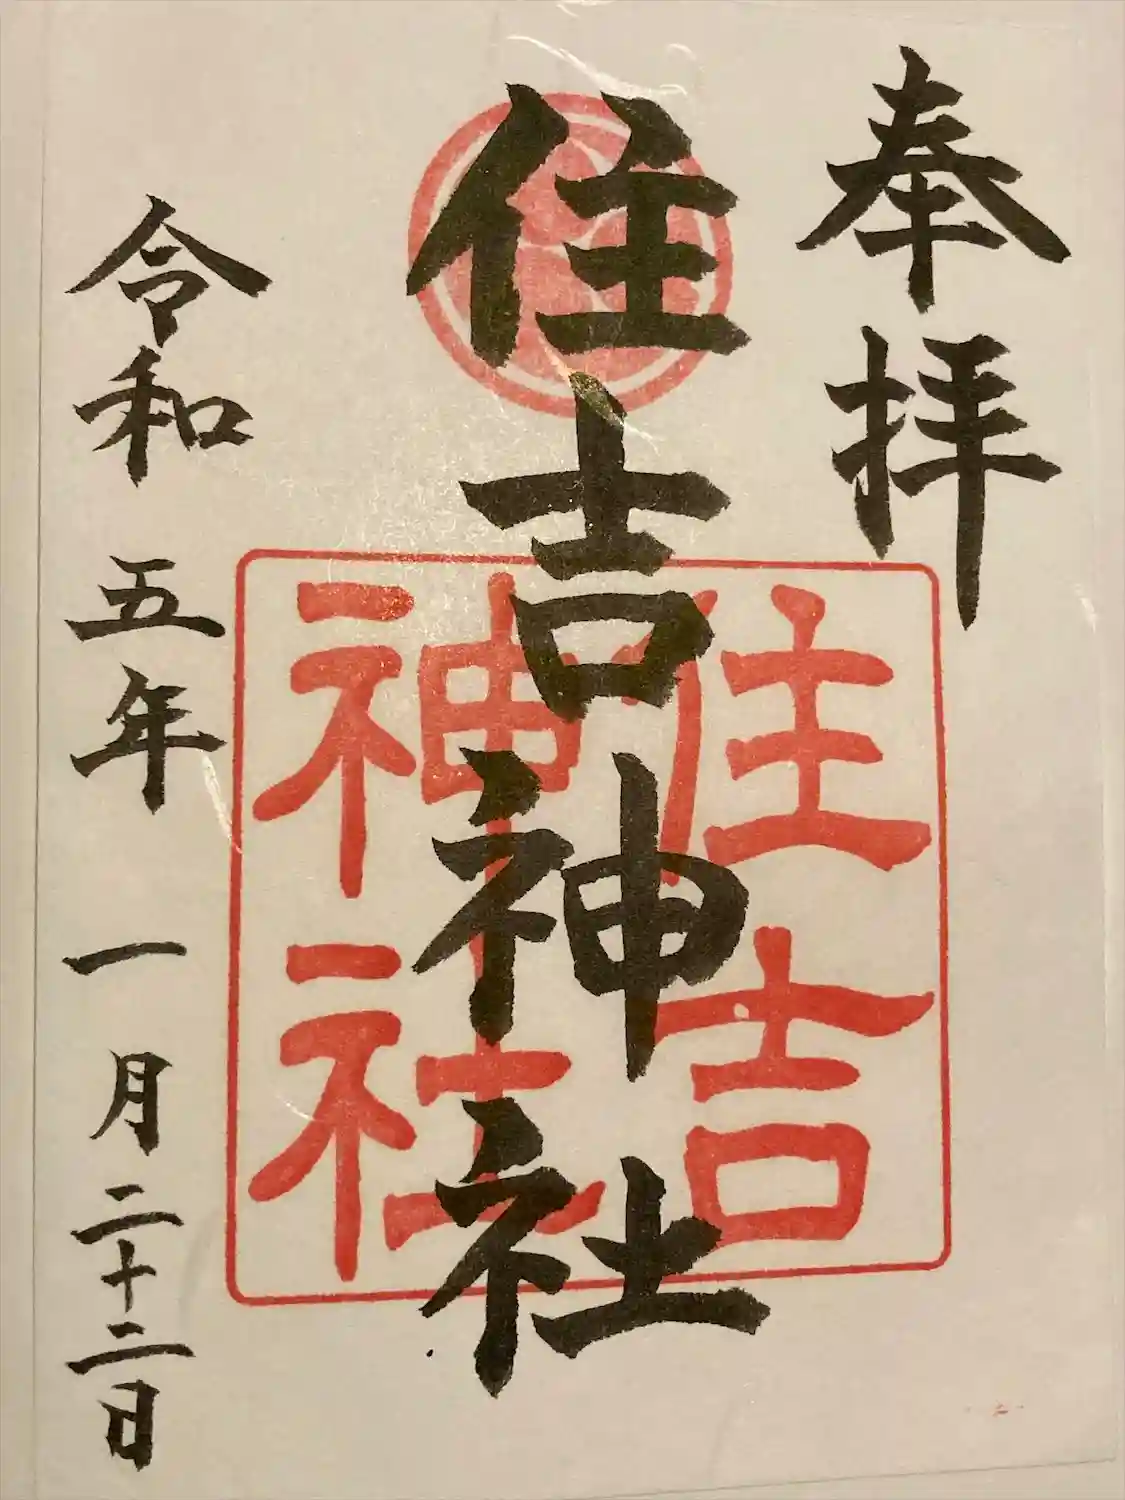 奉拝
住吉神社
住吉
神社
令和五年一月二十二日